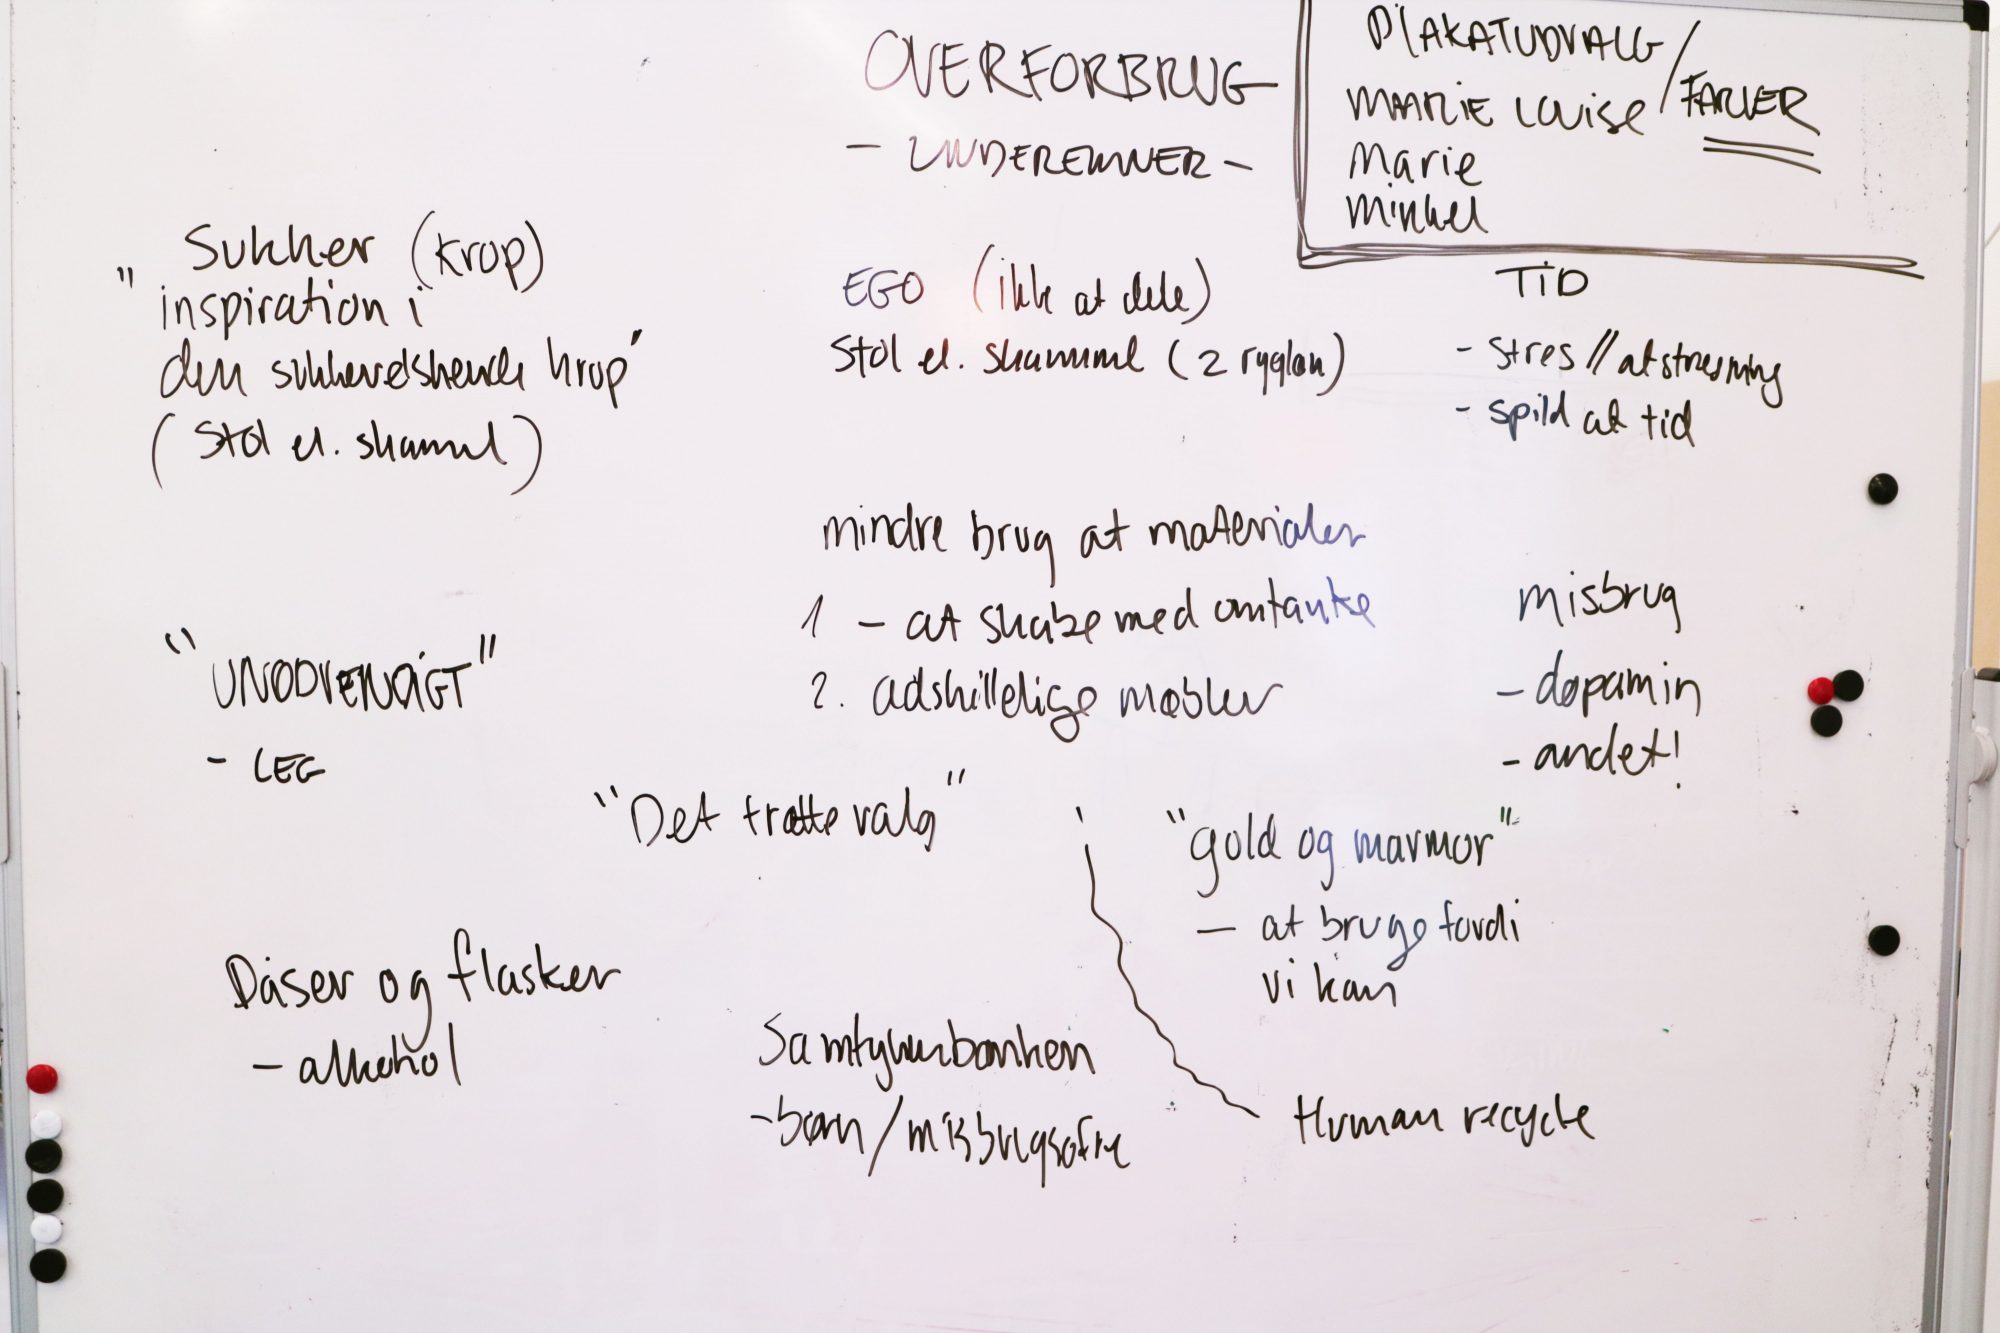 OVERFORBRUG
- UNDEREMNER -
PLAKATUDVALG / FARVER
MARIE LOUISE
Marie
Mikkel
Sukker (krop)
"inspiration i
den sukkerelskende krop"
(Stol el. skammel)
EGO (ikke at dele)
Stol el. skammel (2 ryglæn)
TID
- stres // afstresning
- spild af tid
mindre brug af materialer
1 - at skabe med omtanke
2. adskillelige møbler
misbrug
- dopamin
- andet!
"UNØDVENDIGT"
- LEG
"Det trætte valg"
"gold og marmor"
- at bruge fordi
vi kan
Dåser og flasker
- alkohol
Samtykkebanken
- børn / misbrugsofre
Human recycle